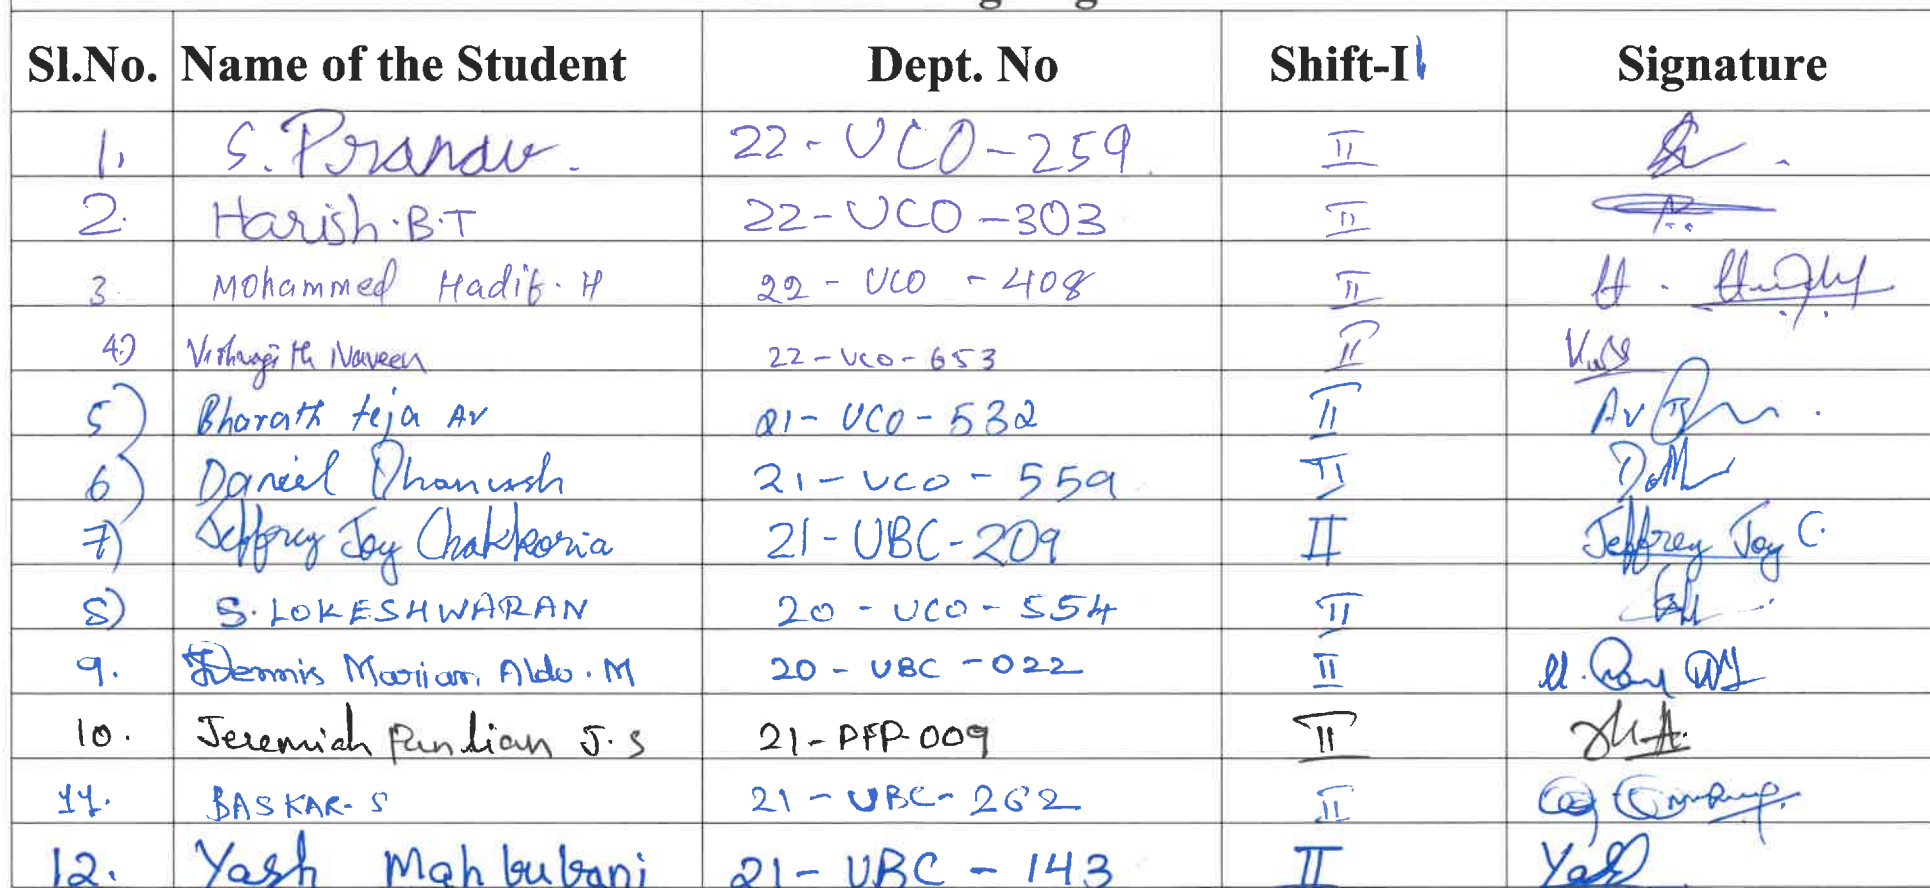 Sl.No. Name of the Student Dept. No Shift-II Signature
1. S. Pranav. 22-UCO-259 II
2. Harish.B.T 22-UCO-303 II
3 Mohammed Hadif. H 22-UCO-408 II H.
4.) Vishwajith Naveen 22-UCO-653 II
5) Bharath teja AV 21-UCO-532 II AV
6) Daniel Dhanush 21-UCO-559 II
7) Jeffrey Joy Chakkoria 21-UBC-209 II Jeffrey Joy C.
8) S. LOKESHWARAN 20-UCO-554 II
9. Dennis Marian Aldo. M 20-UBC-022 II
10. Jeremiah Pandian J.S 21-PFP-009 II
11. BASKAR-S 21-UBC-262 II
12. Yash Mahbubani 21-UBC-143 II Yash